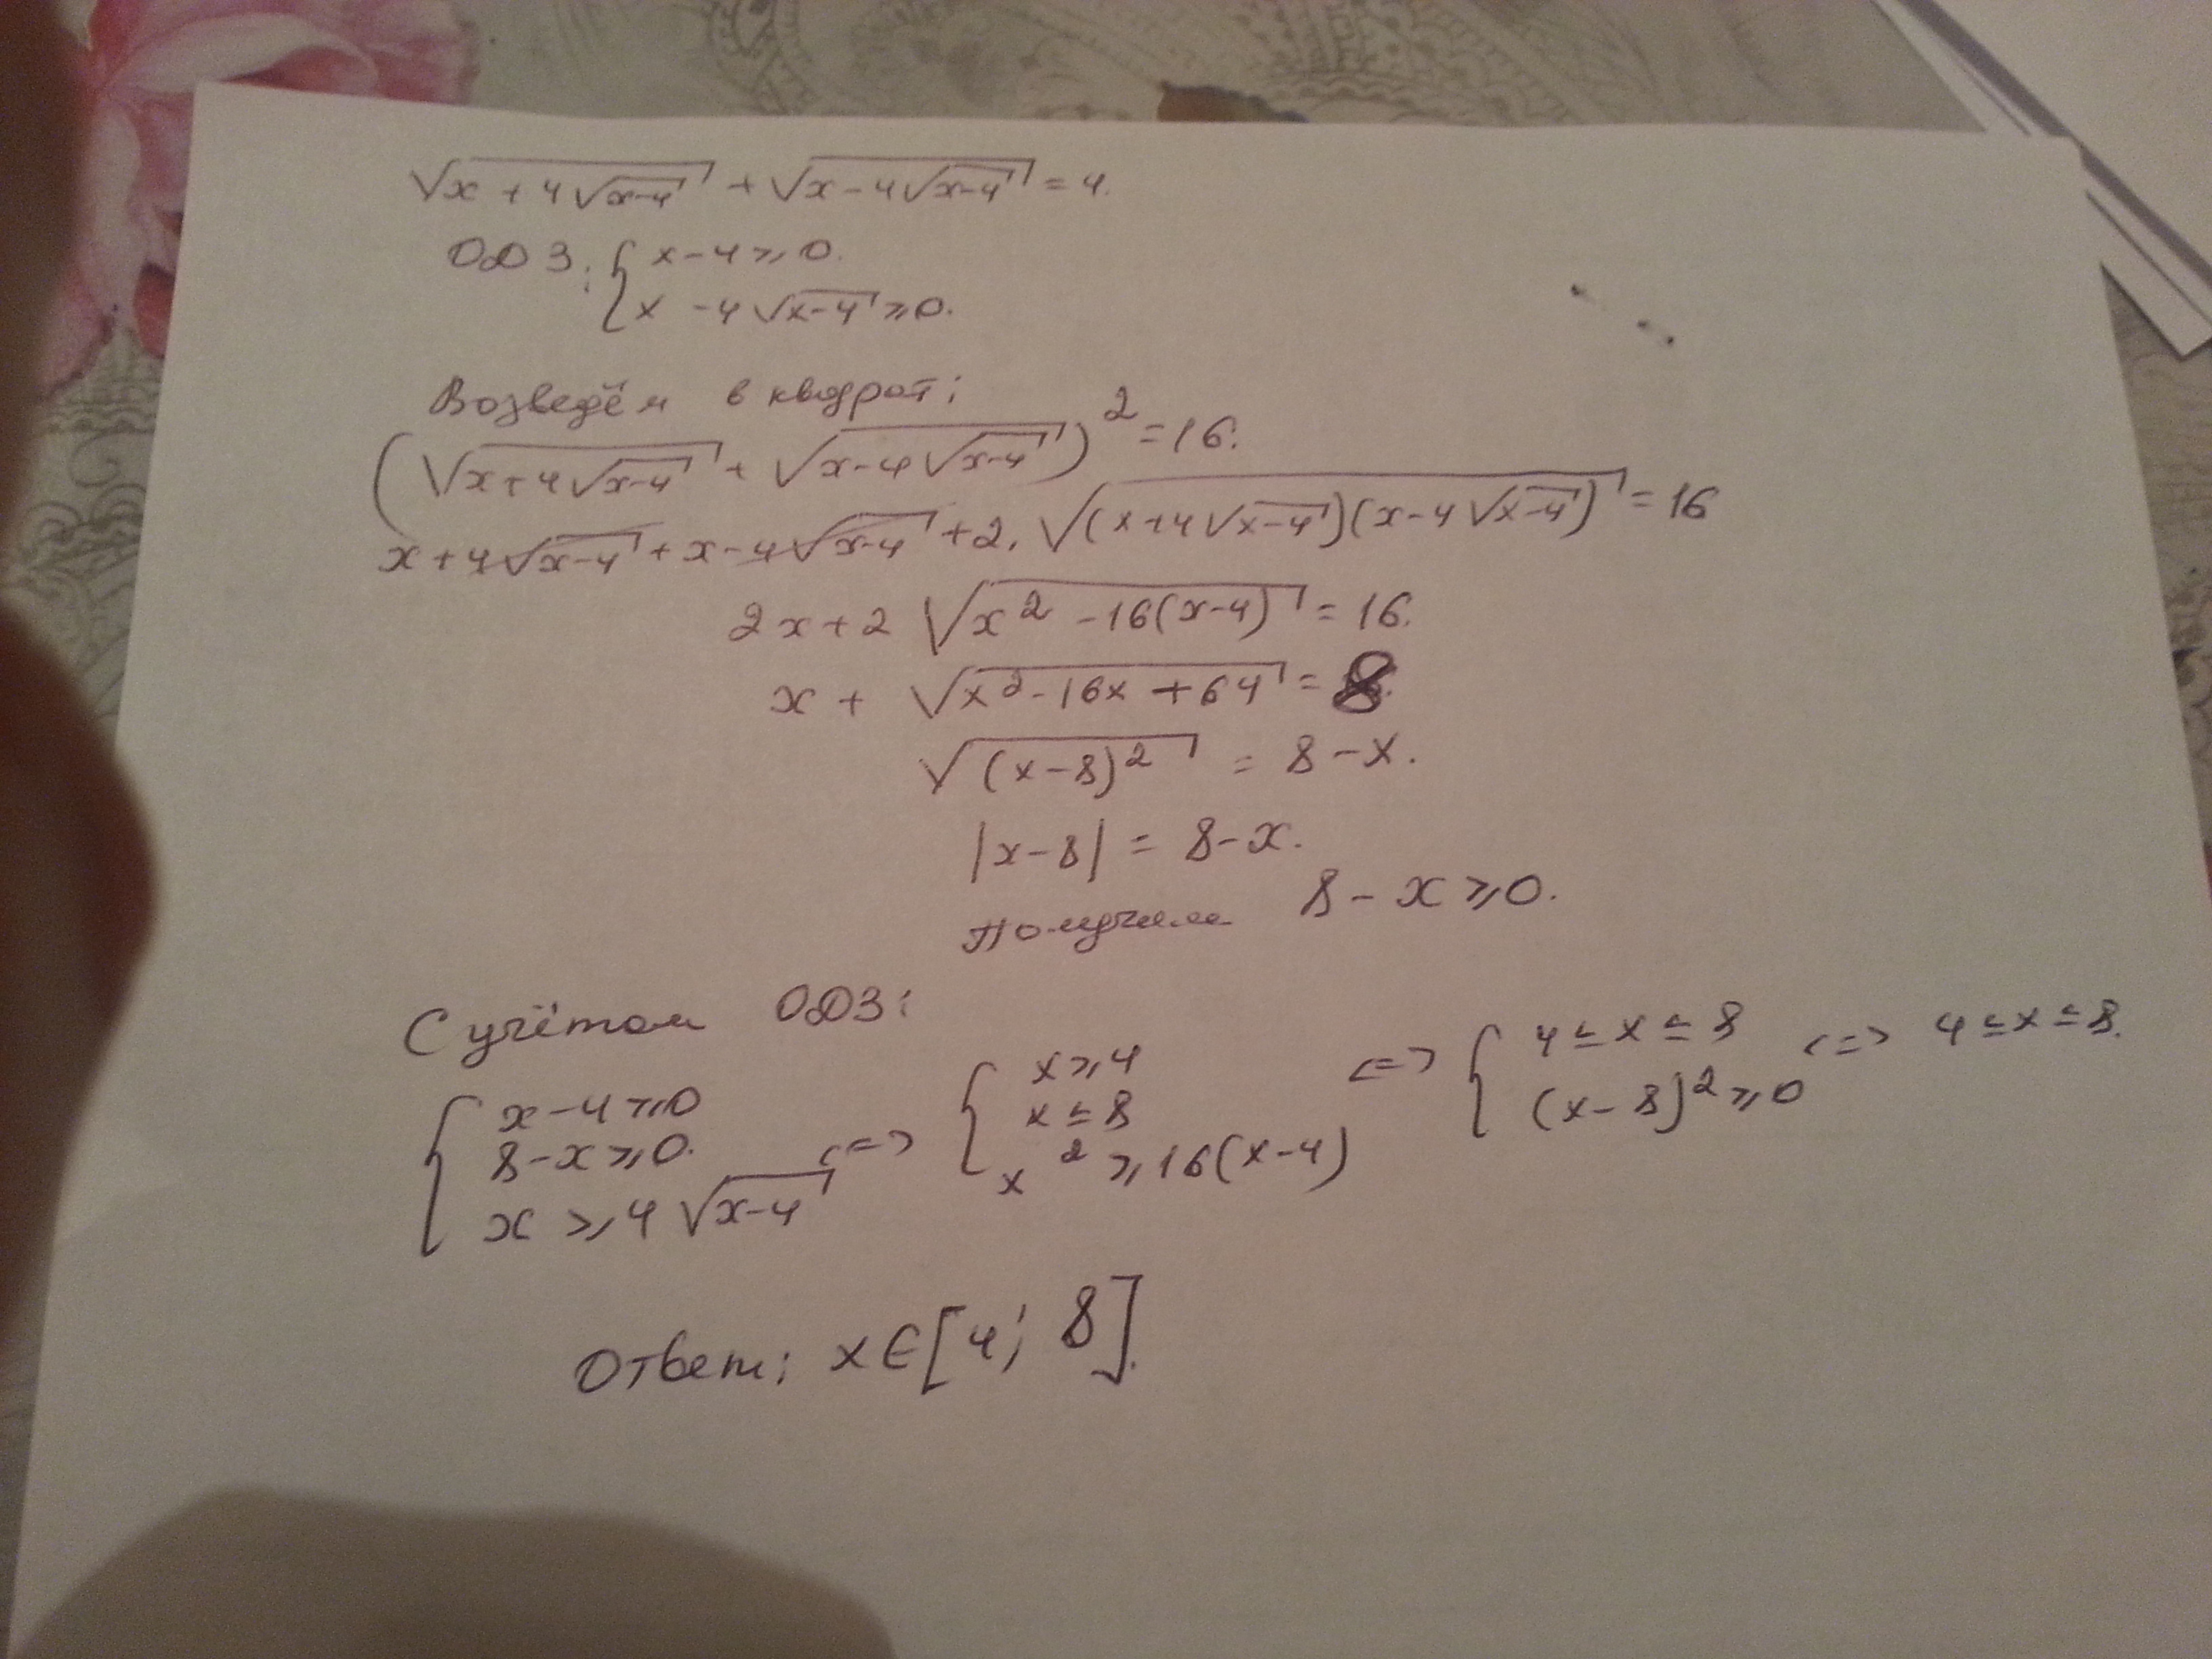 √(x + 4√(x-4)) + √(x - 4√(x-4)) = 4.
ОДЗ: { x - 4 ≥ 0.
x - 4√(x-4) ≥ 0.
Возведём в квадрат:
(√(x + 4√(x-4)) + √(x - 4√(x-4)))² = 16.
x + 4√(x-4) + x - 4√(x-4) + 2·√((x + 4√(x-4))(x - 4√(x-4))) = 16
2x + 2√(x² - 16(x-4)) = 16.
x + √(x² - 16x + 64) = 8.
√((x-8)²) = 8 - x.
|x-8| = 8 - x.
Получим 8 - x ≥ 0.
С учётом ОДЗ:
{ x - 4 ≥ 0
8 - x ≥ 0.
x ≥ 4√(x-4)
<=> { x ≥ 4
x ≤ 8
x² ≥ 16(x-4)
<=> { 4 ≤ x ≤ 8
(x-8)² ≥ 0
<=> 4 ≤ x ≤ 8.
Ответ: x ∈ [4; 8].